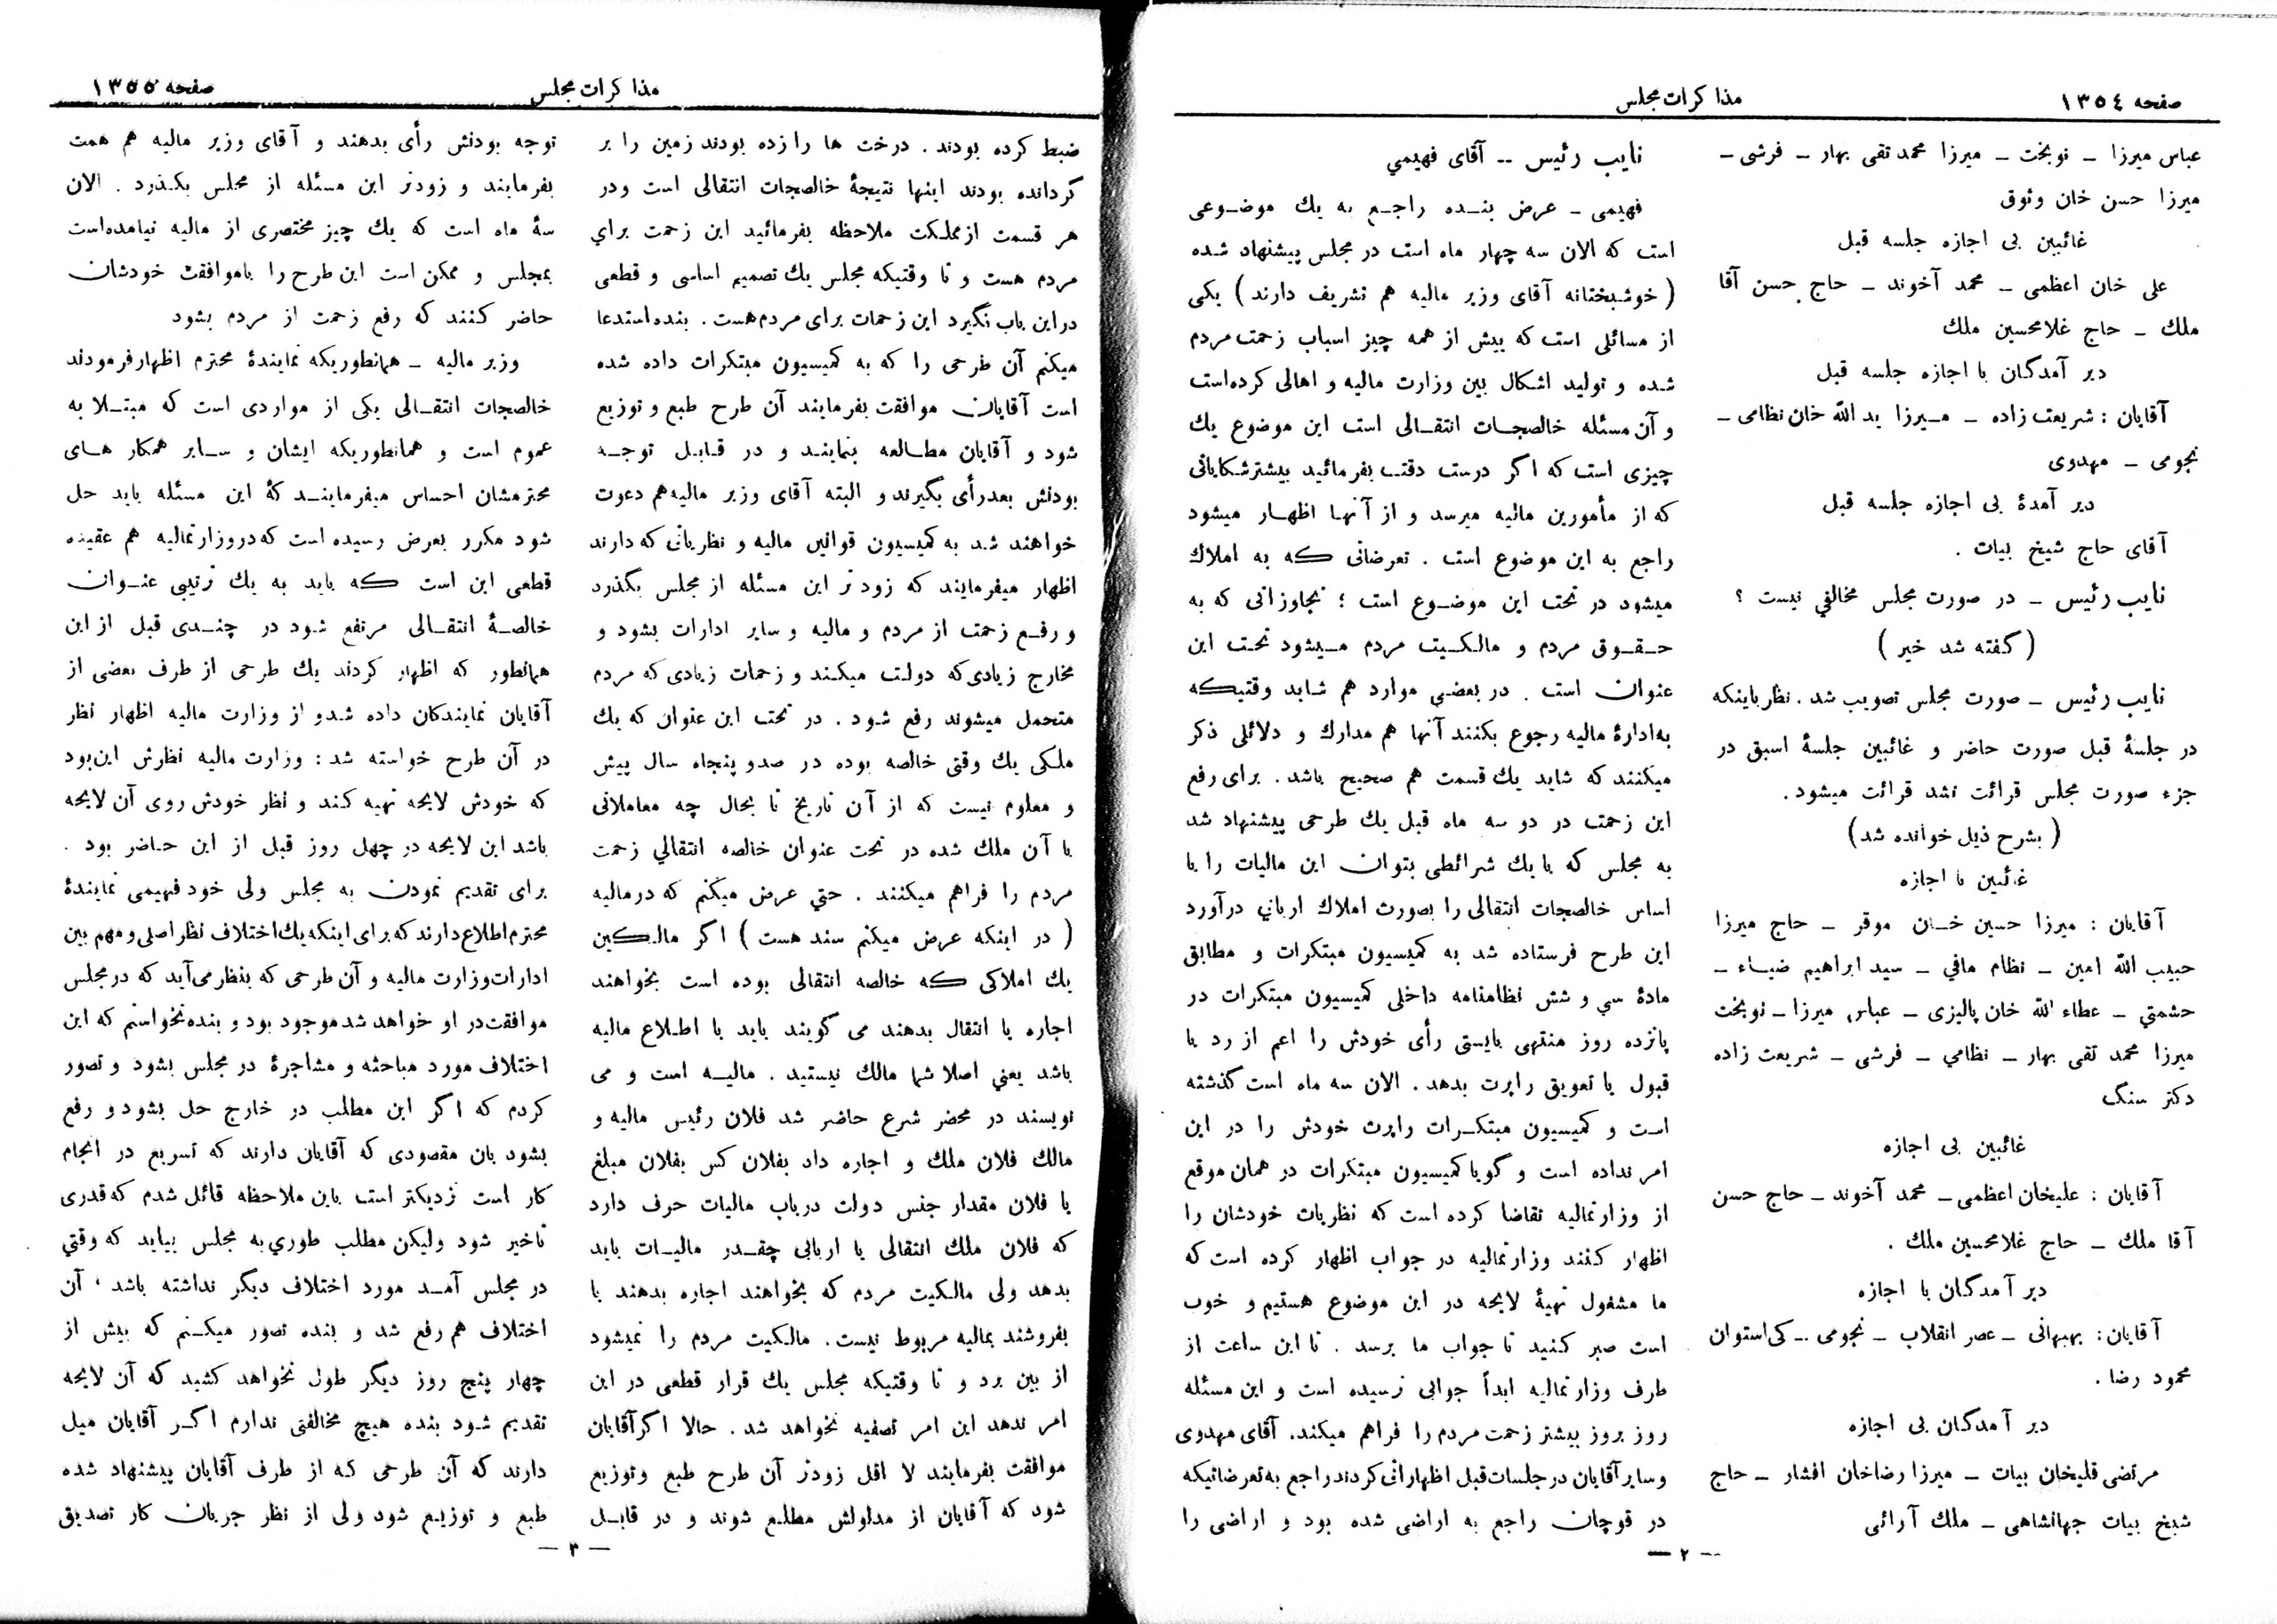 صفحه ١٣٥٤
مذاکرات مجلس
عباس میرزا ـ نوبخت ـ میرزا محمد تقی بهار ـ فرشی ـ
میرزا حسن خان وثوق
غائبین بی اجازه جلسه قبل
علی خان اعظمی ـ محمد آخوند ـ حاج حسن آقا
ملك ـ حاج غلامحسین ملك
دیر آمدگان با اجازه جلسه قبل
آقایان : شریعت زاده ـ میرزا ید الله خان نظامی ـ
نجومی ـ مهدوی
دیر آمدهٔ بی اجازه جلسه قبل
آقای حاج شیخ بیات .
نایب رئیس ـ در صورت مجلس مخالفي نیست ؟
( گفته شد خیر )
نایب رئیس ـ صورت مجلس تصویب شد . نظر باینکه
در جلسهٔ قبل صورت حاضر و غائبین جلسهٔ اسبق در
جزء صورت مجلس قرائت نشد قرائت میشود .
( بشرح ذیل خوانده شد )
غائبین با اجازه
آقایان : میرزا حسین خان موقر ـ حاج میرزا
حبیب الله امین ـ نظام مافي ـ سید ابراهیم ضیاء ـ
حشمتي ـ عطاء الله خان پالیزی ـ عباس میرزا ـ نوبخت
میرزا محمد تقی بهار ـ نظامي ـ فرشی ـ شریعت زاده
دکتر سنگ
غائبین بی اجازه
آقایان : علیخان اعظمی ـ محمد آخوند ـ حاج حسن
آقا ملك ـ حاج غلامحسین ملك .
دیر آمدگان با اجازه
آقایان : بهبهانی ـ عصر انقلاب ـ نجومی ـ کی استوان
محمود رضا .
دیر آمدگان بی اجازه
مرتضی قلیخان بیات ـ میرزا رضاخان افشار ـ حاج
شیخ بیات جهانشاهی ـ ملك آرائی
نایب رئیس -- آقای فهیمي
فهیمی ـ عرض بنده راجع به یك موضوعی
است که الان سه چهار ماه است در مجلس پیشنهاد شده
( خوشبختانه آقای وزیر مالیه هم تشریف دارند ) یکی
از مسائلی است که بیش از همه چیز اسباب زحمت مردم
شده و تولید اشکال بین وزارت مالیه و اهالی کرده است
و آن مسئله خالصجات انتقالی است این موضوع یك
چیزی است که اگر درست دقت بفرمائید بیشتر شکایاتی
که از مأمورین مالیه میرسد و از آنها اظهار میشود
راجع به این موضوع است . تعرضاتی که به املاك
میشود در تحت این موضوع است ؛ تجاوزاتی که به
حقوق مردم و مالکیت مردم میشود تحت این
عنوان است . در بعضي موارد هم شاید وقتیکه
به ادارهٔ مالیه رجوع بکنند آنها هم مدارك و دلائلی ذکر
میکنند که شاید یك قسمت هم صحیح باشد . برای رفع
این زحمت در دو سه ماه قبل یك طرحی پیشنهاد شد
به مجلس که با یك شرائطی بتوان این مالیات را با
اساس خالصجات انتقالی را بصورت املاك اربابي درآورد
این طرح فرستاده شد به کمیسیون مبتکرات و مطابق
مادهٔ سي و شش نظامنامه داخلی کمیسیون مبتکرات در
پانزده روز منتهی بایستی رأی خودش را اعم از رد یا
قبول یا تعویق راپرت بدهد . الان سه ماه است گذشته
است و کمیسیون مبتکرات راپرت خودش را در این
امر نداده است و گویا کمیسیون مبتکرات در همان موقع
از وزارتمالیه تقاضا کرده است که نظریات خودشان را
اظهار کنند وزارتمالیه در جواب اظهار کرده است که
ما مشغول تهیهٔ لایحه در این موضوع هستیم و خوب
است صبر کنید تا جواب ما برسد . تا این ساعت از
طرف وزارتمالیه ابداً جوابی نرسیده است و این مسئله
روز بروز بیشتر زحمت مردم را فراهم میکند . آقای مهدوی
و سایر آقایان در جلسات قبل اظهاراتی کردند راجع به تعرضاتیکه
در قوچان راجع به اراضی شده بود و اراضی را
-- ٢ --
مذاکرات مجلس
صفحه ١٣٥٥
ضبط کرده بودند . درخت ها را زده بودند زمین را بر
گردانده بودند اینها نتیجهٔ خالصجات انتقالی است ودر
هر قسمت از مملکت ملاحظه بفرمائید این زحمت براي
مردم هست و تا وقتیکه مجلس یك تصمیم اساسی و قطعی
در این باب نگیرد این زحمات برای مردم هست . بنده استدعا
میکنم آن طرحی را که به کمیسیون مبتکرات داده شده
است آقایان موافقت بفرمایند آن طرح طبع و توزیع
شود و آقایان مطالعه بنمایند و در قابل توجه
بودنش بعد رأی بگیرند و البته آقای وزیر مالیه هم دعوت
خواهند شد به کمیسیون قوانین مالیه و نظریاتی که دارند
اظهار میفرمایند که زودتر این مسئله از مجلس بگذرد
و رفع زحمت از مردم و مالیه و سایر ادارات بشود و
مخارج زیادی که دولت میکند و زحمات زیادی که مردم
متحمل میشوند رفع شود . در تحت این عنوان که یك
ملکی یك وقتی خالصه بوده در صد و پنجاه سال پیش
و معلوم نیست که از آن تاریخ تا بحال چه معاملاتی
با آن ملك شده در تحت عنوان خالصه انتقالي زحمت
مردم را فراهم میکنند . حتي عرض میکنم که در مالیه
( در اینکه عرض میکنم سند هست ) اگر مالکین
یك املاکی که خالصه انتقالی بوده است بخواهند
اجاره یا انتقال بدهند می گویند باید با اطلاع مالیه
باشد یعني اصلا شما مالك نیستید . مالیه است و می
نویسند در محضر شرع حاضر شد فلان رئیس مالیه و
مالك فلان ملك و اجاره داد بفلان کس بفلان مبلغ
یا فلان مقدار جنس دولت درباب مالیات حرف دارد
که فلان ملك انتقالی یا اربابی چقدر مالیات باید
بدهد ولی مالکیت مردم که بخواهند اجاره بدهند یا
بفروشند بمالیه مربوط نیست . مالکیت مردم را نمیشود
از بین برد و تا وقتیکه مجلس یك قرار قطعی در این
امر ندهد این امر تصفیه نخواهد شد . حالا اگر آقایان
موافقت بفرمایند لا اقل زودتر آن طرح طبع وتوزیع
شود که آقایان از مدلولش مطلع شوند و در قابل
توجه بودنش رأی بدهند و آقای وزیر مالیه هم همت
بفرمایند و زودتر این مسئله از مجلس بگذرد . الان
سهٔ ماه است که یك چیز مختصری از مالیه نیامده است
بمجلس و ممکن است این طرح را با موافقت خودشان
حاضر کنند که رفع زحمت از مردم بشود
وزیر مالیه ـ همانطوریکه نمایندهٔ محترم اظهار فرمودند
خالصجات انتقالی یکی از مواردی است که مبتلا به
عموم است و همانطوریکه ایشان و سایر همکار های
محترمشان احساس میفرمایند کهٔ این مسئله باید حل
شود مکرر بعرض رسیده است که در وزارتمالیه هم عقیده
قطعی این است که باید به یك ترتیبی عنوان
خالصهٔ انتقالی مرتفع شود در چندی قبل از این
همانطور که اظهار کردند یك طرحی از طرف بعضی از
آقایان نمایندکان داده شد و از وزارت مالیه اظهار نظر
در آن طرح خواسته شد : وزارت مالیه نظرش این بود
که خودش لایحه تهیه کند و نظر خودش روی آن لایحه
باشد این لایحه در چهل روز قبل از این حاضر بود .
برای تقدیم نمودن به مجلس ولی خود فهیمی نمایندهٔ
محترم اطلاع دارند که برای اینکه یك اختلاف نظر اصلی و مهم بین
ادارات وزارت مالیه و آن طرحی که بنظر می آید که در مجلس
موافقت در او خواهد شد موجود بود و بنده نخواستم که این
اختلاف مورد مباحثه و مشاجرهٔ در مجلس بشود و تصور
کردم که اگر این مطلب در خارج حل بشود و رفع
بشود بان مقصودی که آقایان دارند که تسریع در انجام
کار است نزدیکتر است باین ملاحظه قائل شدم که قدری
تاخیر شود ولیکن مطلب طوري به مجلس بیاید که وقتي
در مجلس آمد مورد اختلاف دیگر نداشته باشد ، آن
اختلاف هم رفع شد و بنده تصور میکنم که بیش از
چهار پنج روز دیگر طول نخواهد کشید که آن لایحه
تقدیم شود بنده هیچ مخالفتی ندارم اگر آقایان میل
دارند که آن طرحی که از طرف آقایان پیشنهاد شده
طبع و توزیع شود ولی از نظر جریان کار تصدیق
— ٣ —